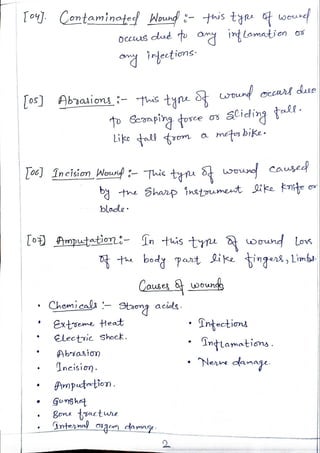 [04]. Contaminated Wound :- this type of wound
occurs due to any inflamation or
any injections.
[05] Abrasions :- This type of wound occurs due
to Scraping force or Sliding fall.
Like fall from a motor bike.
[06] Incision Wound :- This type of wound caused
by the Sharp instrument like knife or
blade.
[07] Amputation :- In this type of wound Loss
of the body part like fingers, Limbs.
Causes of wounds
• Chemicals :- Strong acids.
• Extreme Heat
• Electric Shock.
• Abrasion
• Incision.
• Amputation.
• Gunshot
• Bone fracture
• Internal organ damage.
• Infections
• Inflamations.
• Nerve damage.
2